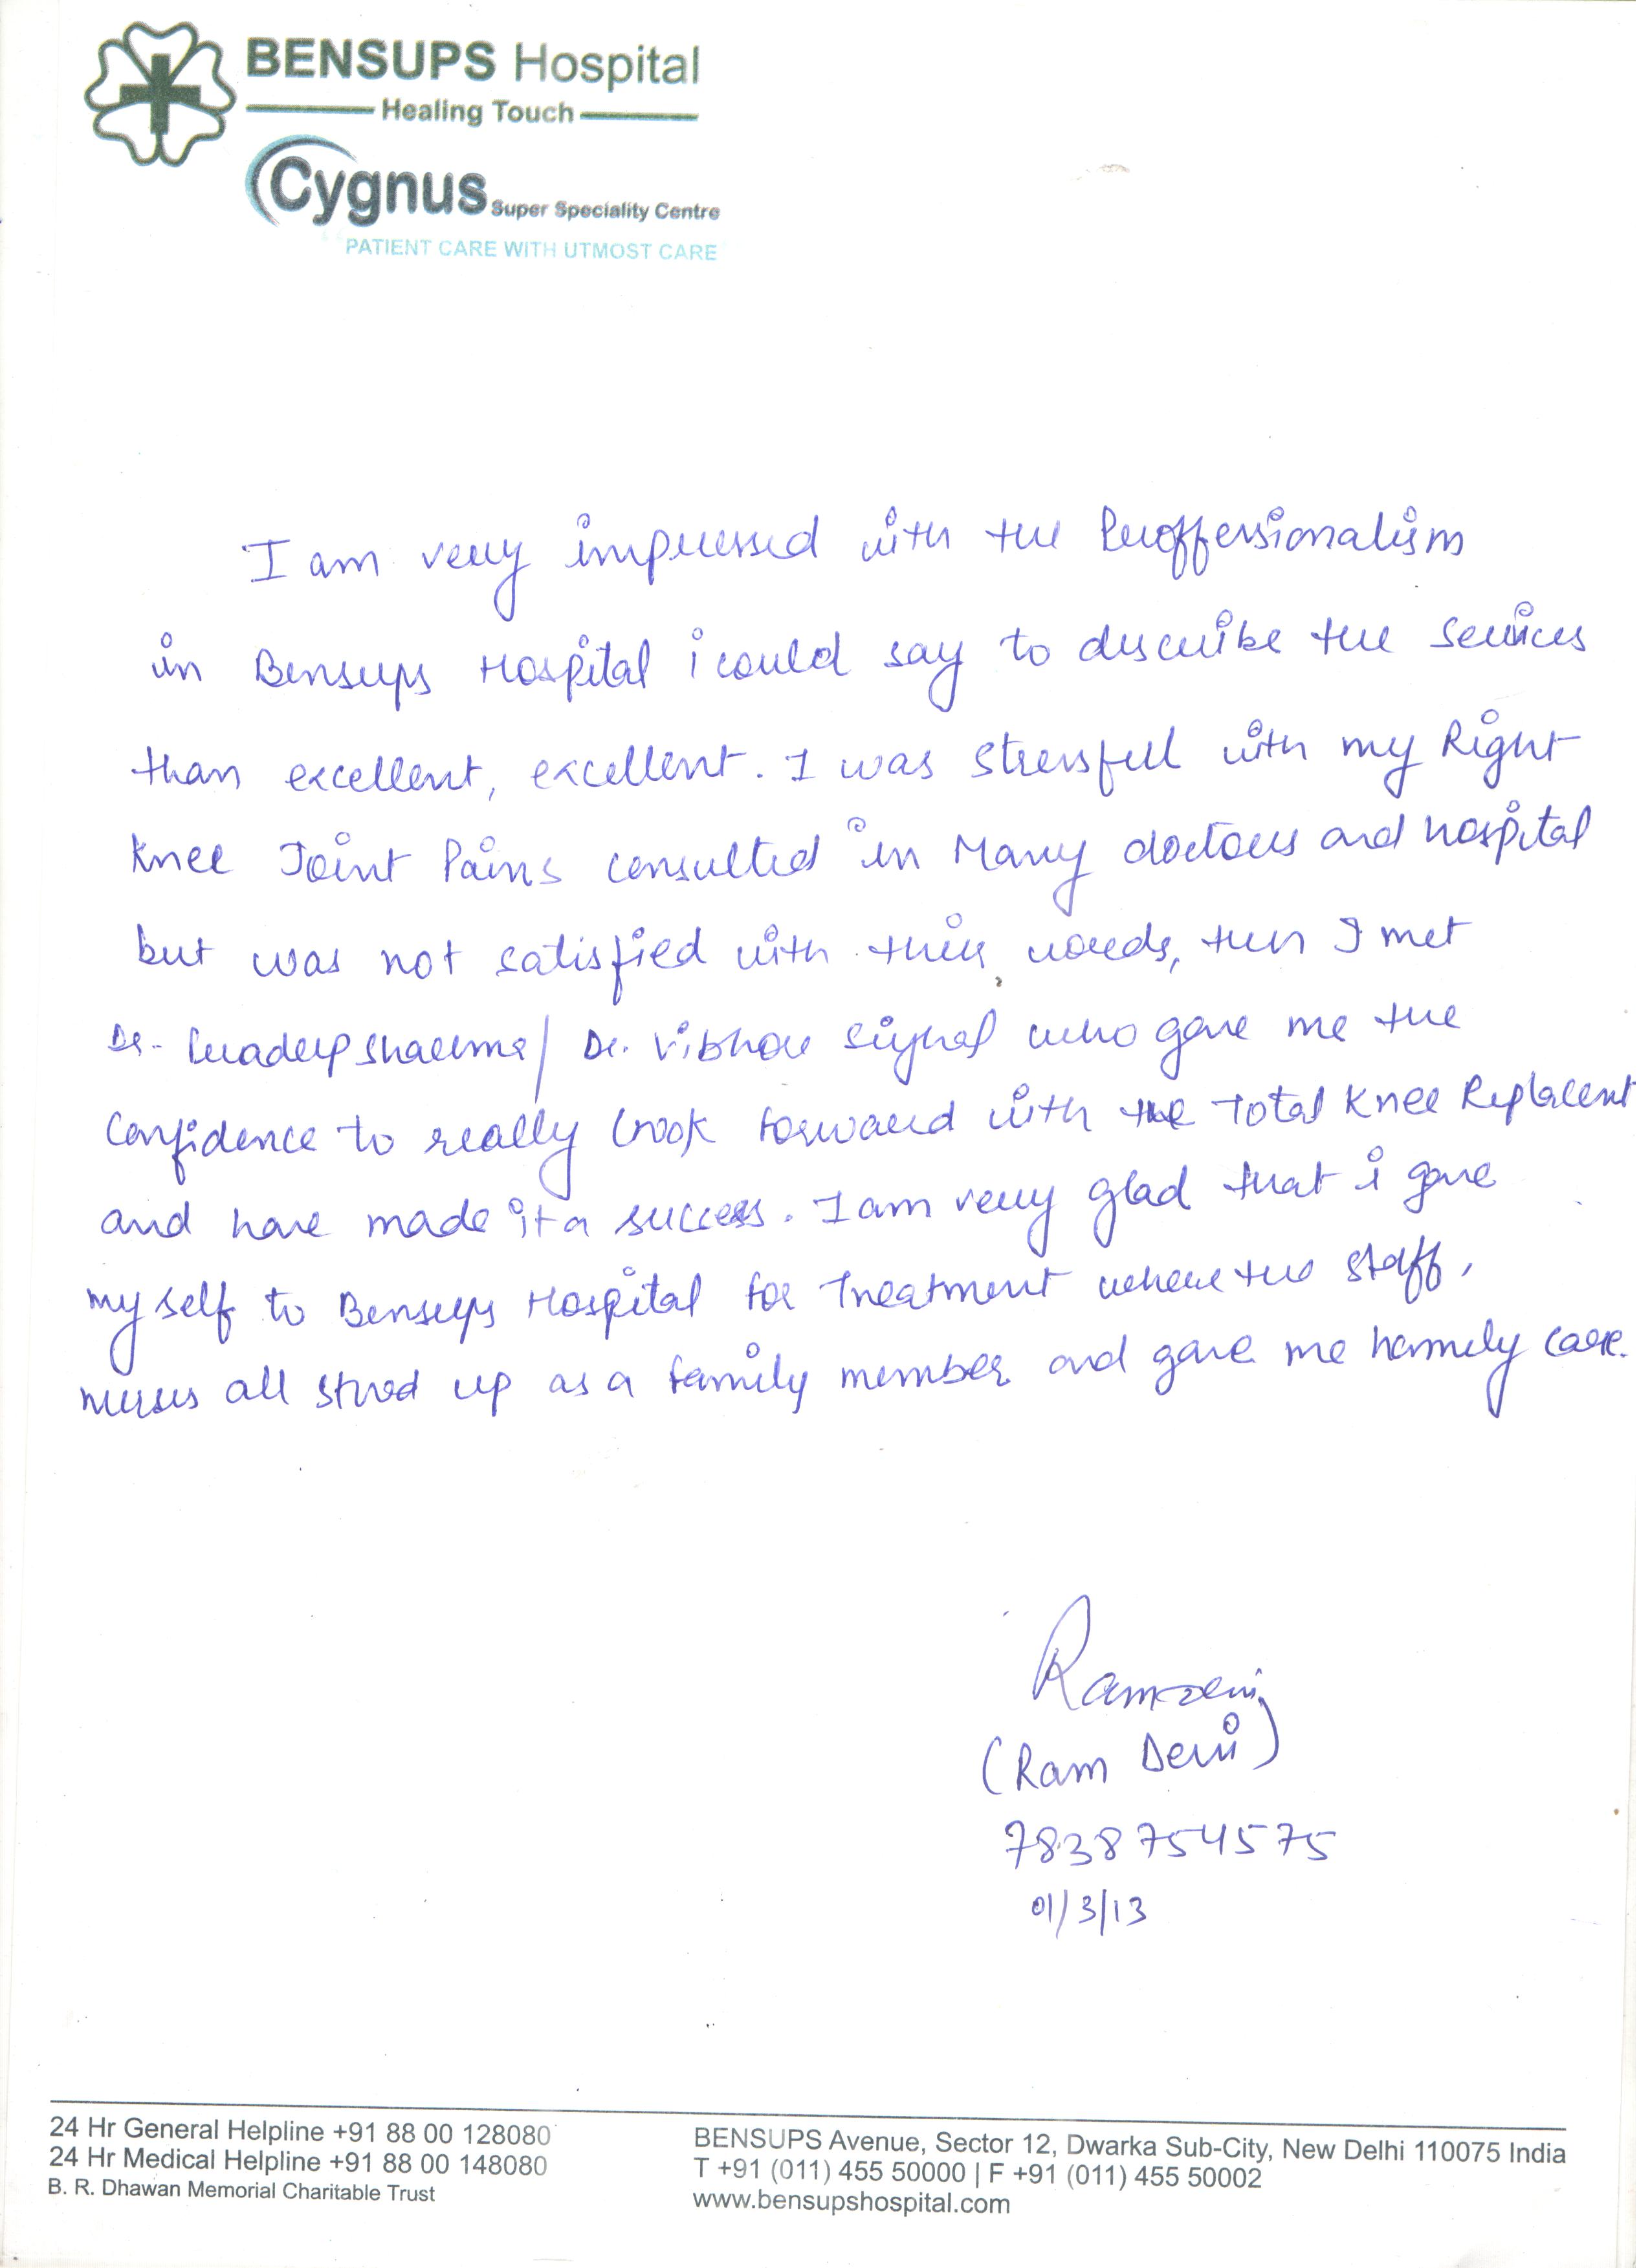 BENSUPS Hospital
Healing Touch
Cygnus Super Speciality Centre
PATIENT CARE WITH UTMOST CARE
I am very impressed with the Proffersionalism
in Bensups Hospital i could say to discribe the services
than excellent, excellent. I was stressful with my Right
Knee Joint Pains consulted in Many doctors and hospital
but was not satisfied with their words, then I met
Dr. Pradeep Sharma / Dr. Vibhor Signal who gave me the
Confidence to really look forward with the Total Knee Replacent
and have made it a success. I am very glad that i gave
my self to Bensups Hospital for Treatment where the staff,
nurses all stood up as a family member and gave me homely care.
Ramdevi
(Ram Devi)
7838754575
01/3/13
24 Hr General Helpline +91 88 00 128080
24 Hr Medical Helpline +91 88 00 148080
B. R. Dhawan Memorial Charitable Trust
BENSUPS Avenue, Sector 12, Dwarka Sub-City, New Delhi 110075 India
T +91 (011) 455 50000 | F +91 (011) 455 50002
www.bensupshospital.com